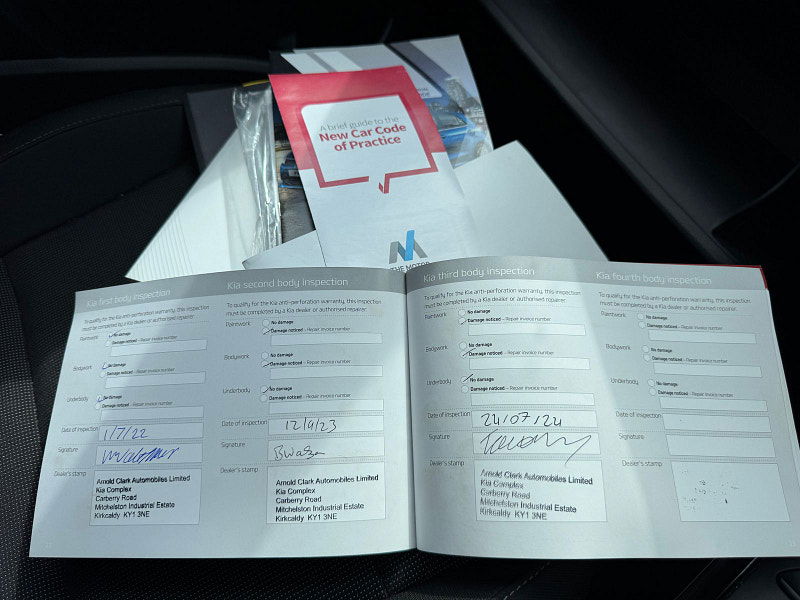 A brief guide to the
New Car Code
of Practice
THE MOTOR
Kia first body inspection
To qualify for the Kia anti-perforation warranty, this inspection
must be completed by a Kia dealer or authorised repairer.
Paintwork
No damage
Damage noticed – Repair invoice number
Bodywork
No damage
Damage noticed – Repair invoice number
Underbody
No damage
Damage noticed – Repair invoice number
Date of inspection
1/7/22
Signature
Dealer's stamp
Arnold Clark Automobiles Limited
Kia Complex
Carberry Road
Mitchelston Industrial Estate
Kirkcaldy KY1 3NE
Kia second body inspection
To qualify for the Kia anti-perforation warranty, this inspection
must be completed by a Kia dealer or authorised repairer.
Paintwork
No damage
Damage noticed – Repair invoice number
Bodywork
No damage
Damage noticed – Repair invoice number
Underbody
No damage
Damage noticed – Repair invoice number
Date of inspection
12/9/23
Signature
Dealer's stamp
Arnold Clark Automobiles Limited
Kia Complex
Carberry Road
Mitchelston Industrial Estate
Kirkcaldy KY1 3NE
Kia third body inspection
To qualify for the Kia anti-perforation warranty, this inspection
must be completed by a Kia dealer or authorised repairer.
Paintwork
No damage
Damage noticed – Repair invoice number
Bodywork
No damage
Damage noticed – Repair invoice number
Underbody
No damage
Damage noticed – Repair invoice number
Date of inspection
24/07/24
Signature
Dealer's stamp
Arnold Clark Automobiles Limited
Kia Complex
Carberry Road
Mitchelston Industrial Estate
Kirkcaldy KY1 3NE
Kia fourth body inspection
To qualify for the Kia anti-perforation warranty, this inspection
must be completed by a Kia dealer or authorised repairer.
Paintwork
No damage
Damage noticed – Repair invoice number
Bodywork
No damage
Damage noticed – Repair invoice number
Underbody
No damage
Damage noticed – Repair invoice number
Date of inspection
Signature
Dealer's stamp